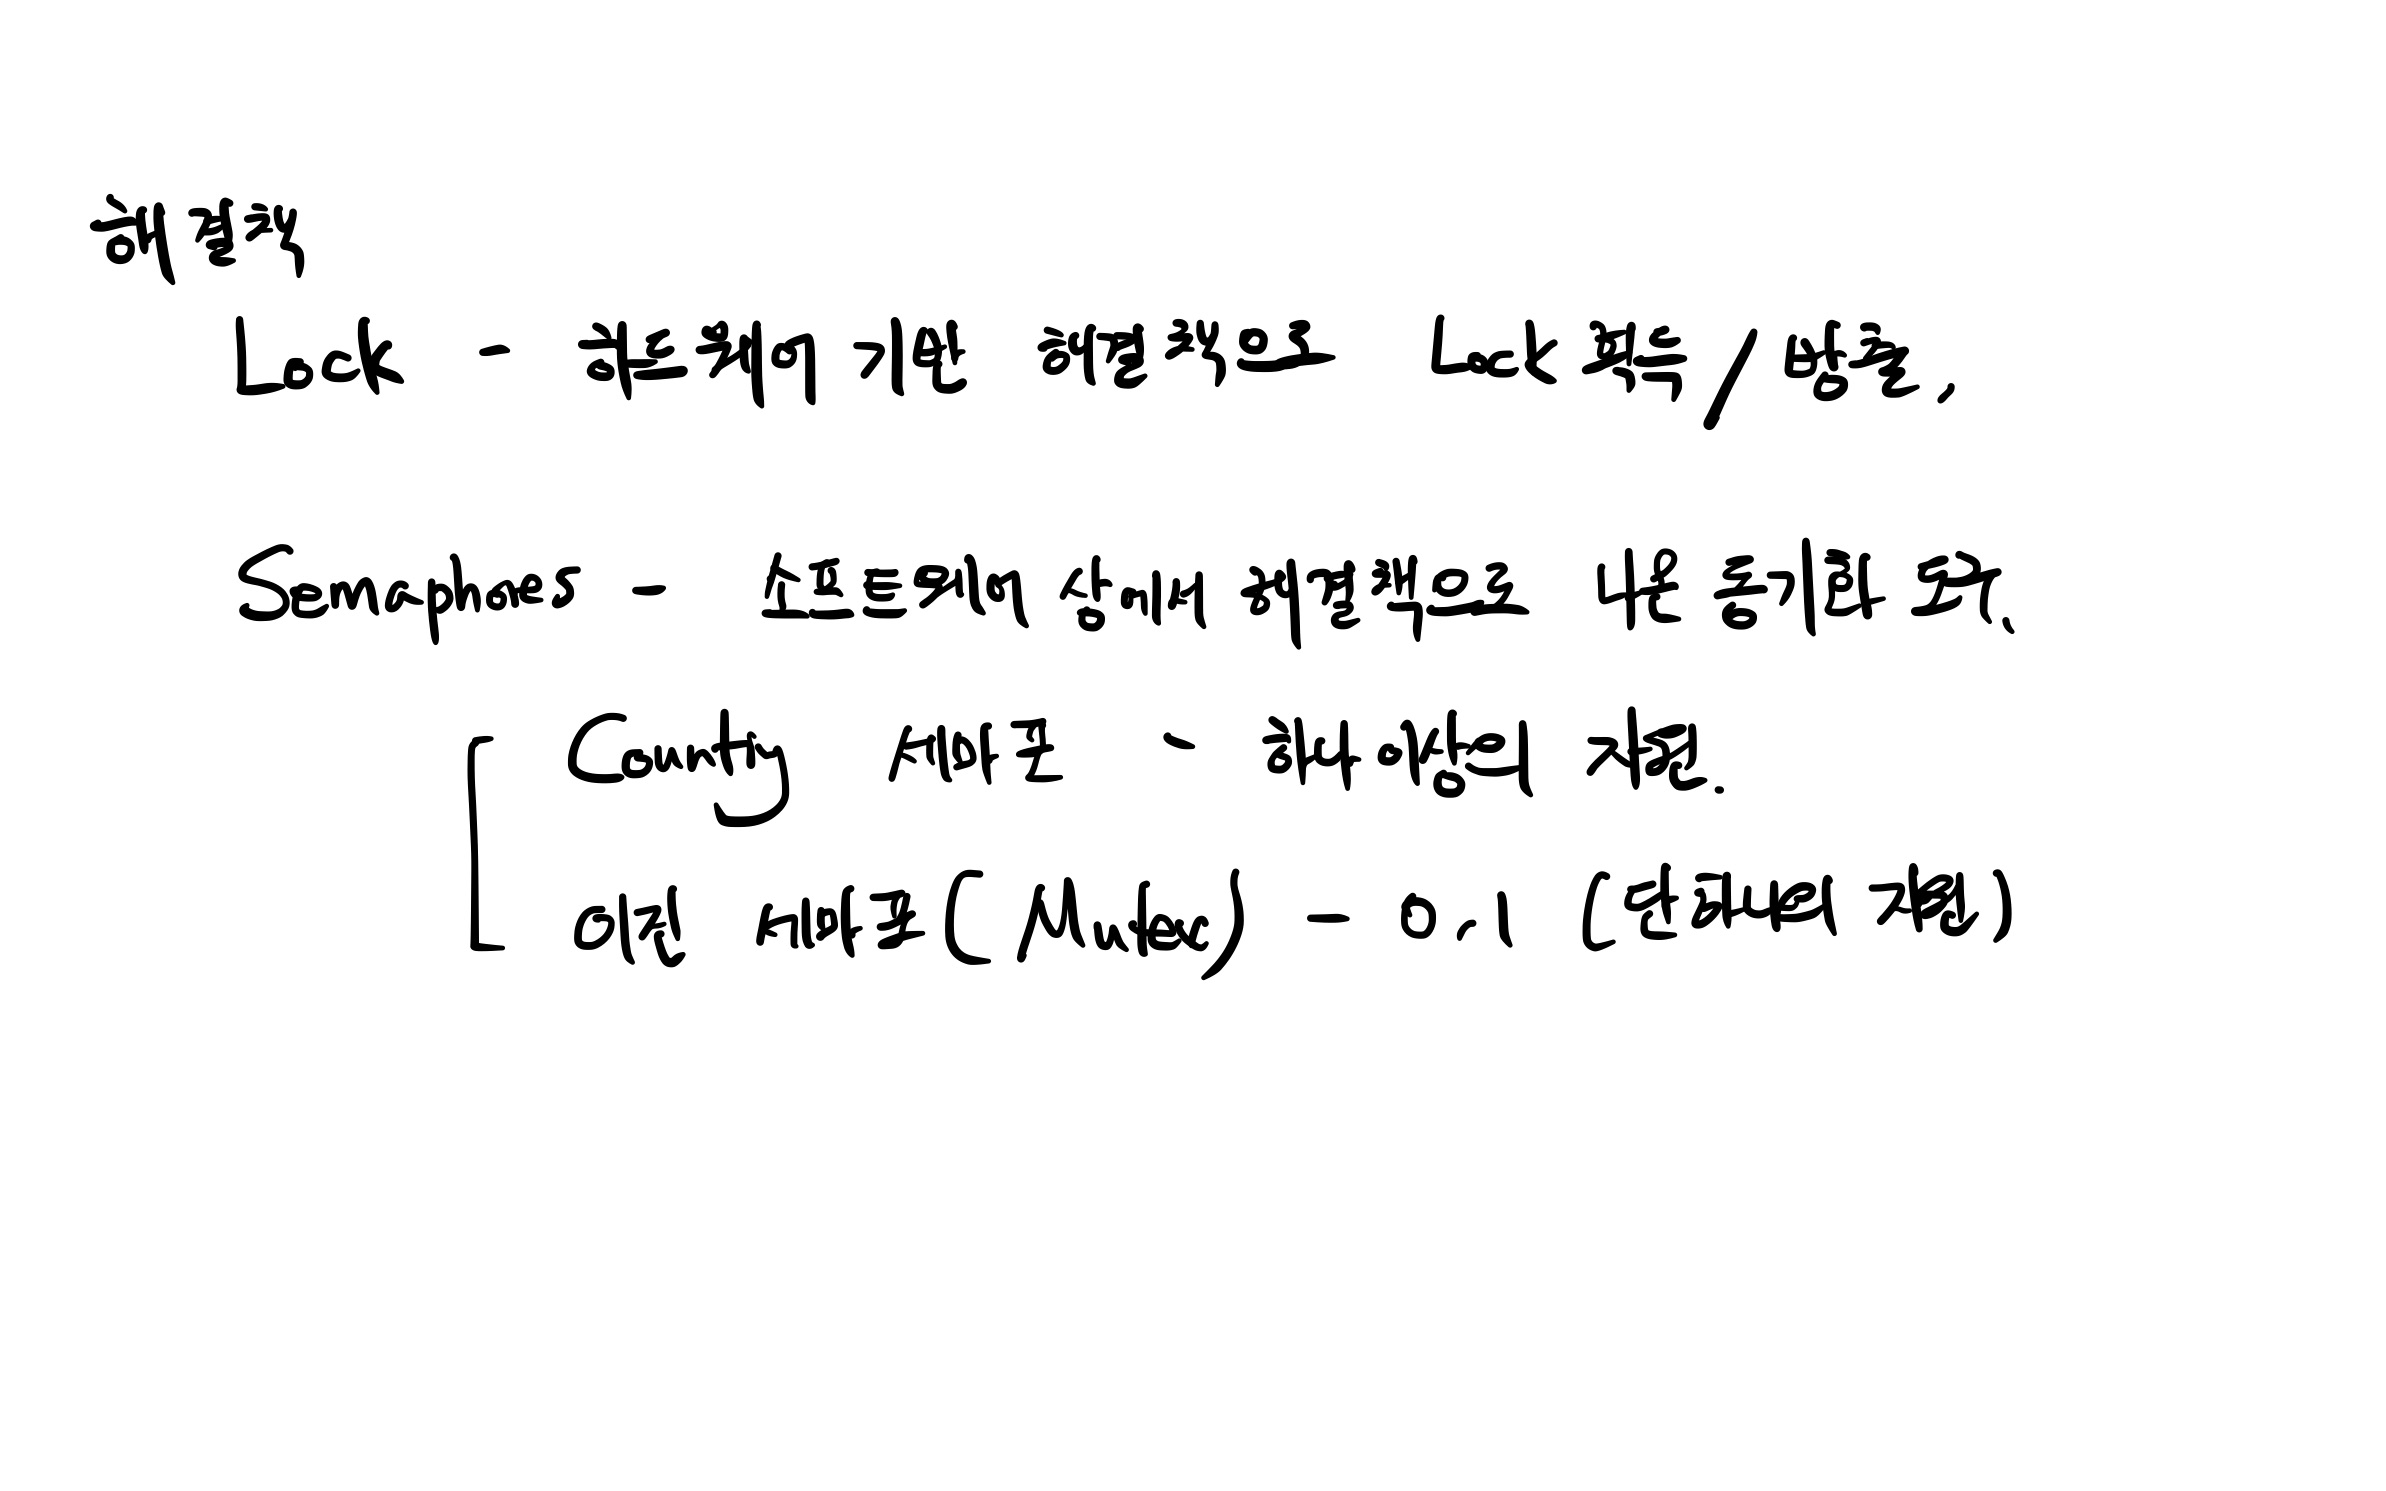 해결책
Lock - 하드웨어 기반 해결책으로 Lock 획득/방출.
Semaphores - 소프트웨어 상에서 해결책으로 나온 동기화 도구.
Counting 세마포 - 하나 이상의 자원.
이진 세마포(Mutex) - 0, 1 (단 하나의 자원)